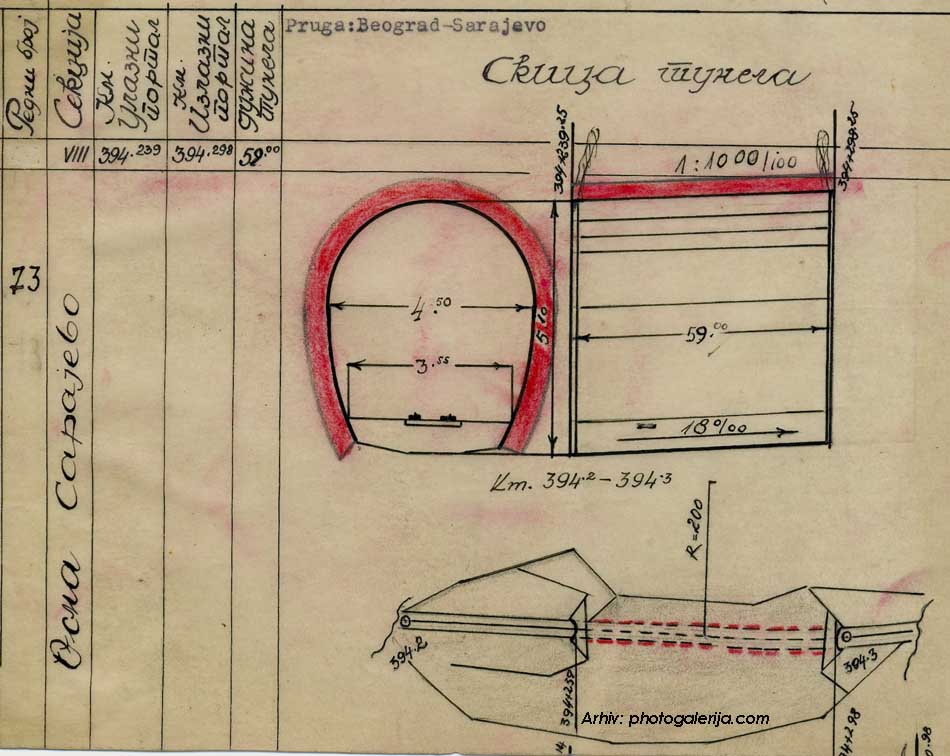 Pruga:Beograd-Sarajevo
Редни број
Секција
Км. Улазни портал
Км. Излазни портал
Дужина тунела
Скица тунела
VIII
394.239
394.298
59.00
394+239.25
1:1000/100
394+299.25
73
Осма Сарајево
4.50
5.10
3.55
59.00
18‰
Km. 394.2 - 394.3
R=200
394.2
394.3
Arhiv: photogalerija.com